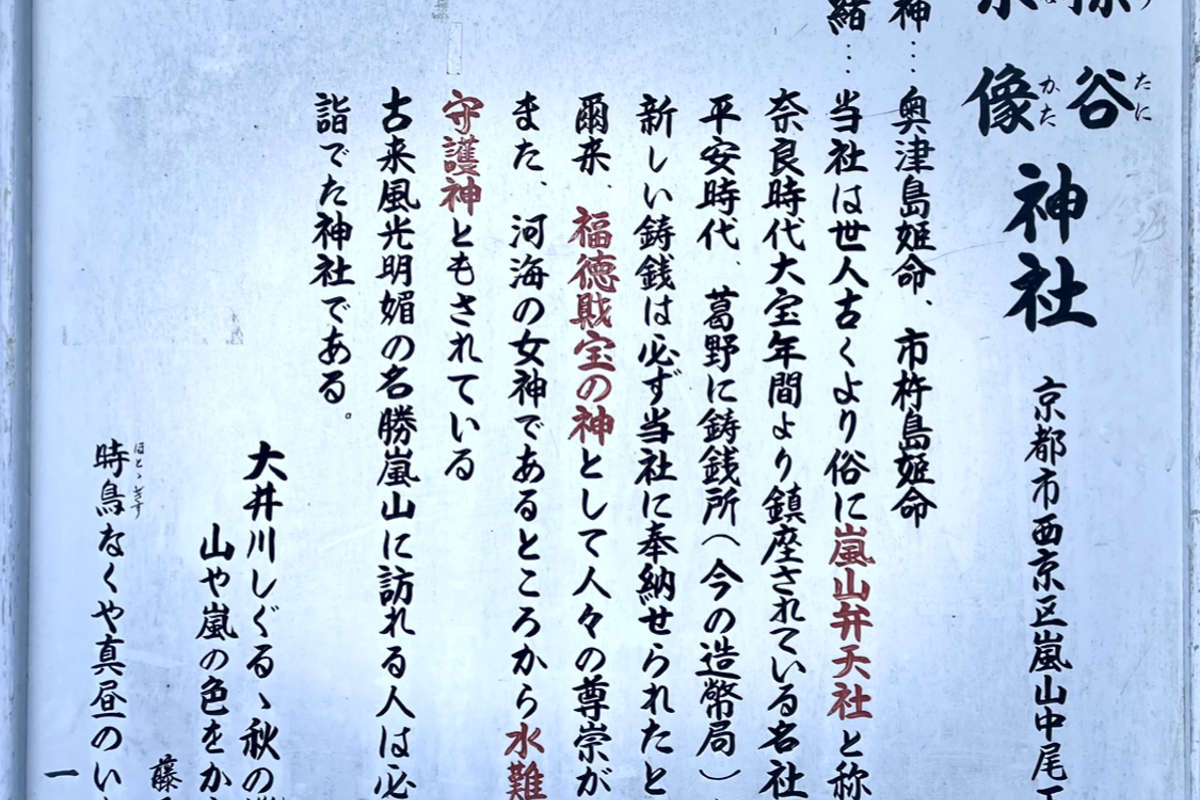 谷 たに
像 かた
神社
京都市西京区嵐山中尾
神…奥津島姫命、市杵島姫命
緒…当社は世人古くより俗に嵐山弁天社と称
奈良時代大宝年間より鎮座されている名社
平安時代、葛野に鋳銭所(今の造幣局)
新しい鋳銭は必ず当社に奉納せられたと
爾来、福徳財宝の神として人々の尊崇が
また、河海の女神であるところから水難
守護神ともされている
古来風光明媚の名勝嵐山に訪れる人は必
詣でた神社である。
大井川しぐるゝ秋の
山や嵐の色をか
藤
時鳥なくや真昼のい
ほとゝぎす
一